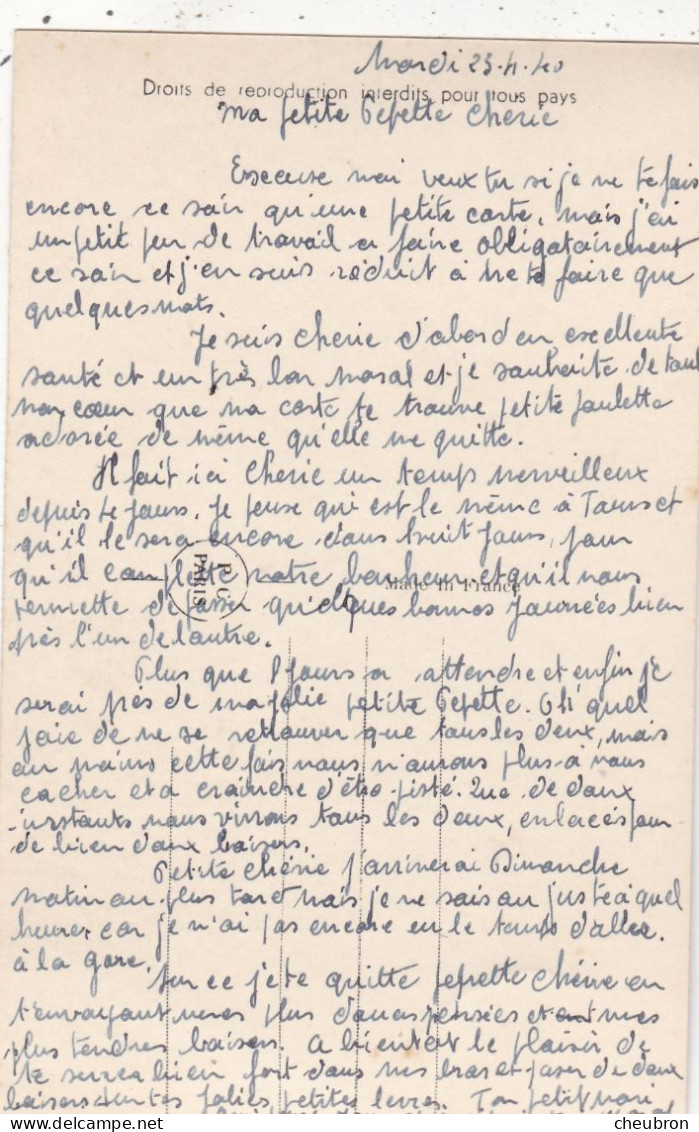 Mardi 23.4.40
Droits de reproduction interdits pour tous pays
Ma petite Pepette Cherie
Excuse moi veux tu si je ne te fais
encore ce soir qu'une petite carte, mais j'ai
un petit peu de travail a faire obligatoirement
ce soir et j'en suis réduit à ne te faire que
quelques mots.
Je suis Cherie d'abord en excellente
santé et un très bon moral et je souhaite de tout
mon cœur que ma carte te trouve petite paulette
adorée de même qu'elle me quitte.
Il fait ici Cherie un temps merveilleux
depuis jours. Je pense qui est le même à Tours et
qu'il le sera encore dans huit jours, pour
qu'il complette notre bonheur et qu'il nous
R.C. PARIS
Made in France
permette de passer quelques bonnes journées bien
près l'un de l'autre.
Plus que 8 jours a attendre et enfin je
serai près de ma jolie petite Pepette. Oh! quel
joie de ne se retrouver que tous les deux, mais
au moins cette fois nous n'aurons plus à nous
cacher et a craindre d'être pisté. Que de doux
instants nous vivrons tous les deux, enlacés pour
de bien doux baisers.
Petite chérie j'arriverai Dimanche
matin au plus tard mais je ne sais au juste à quel
heure, car je n'ai pas encore eu le temps d'aller
à la gare.
Sur ce je te quitte pepette Chérie en
t'envoyant mes plus douces pensées et mes
plus tendres baisers. A bientôt le plaisir de
te serrer bien fort dans mes bras et poser de doux
baisers sur tes jolies petites levres. Ton petit mari
cheubron